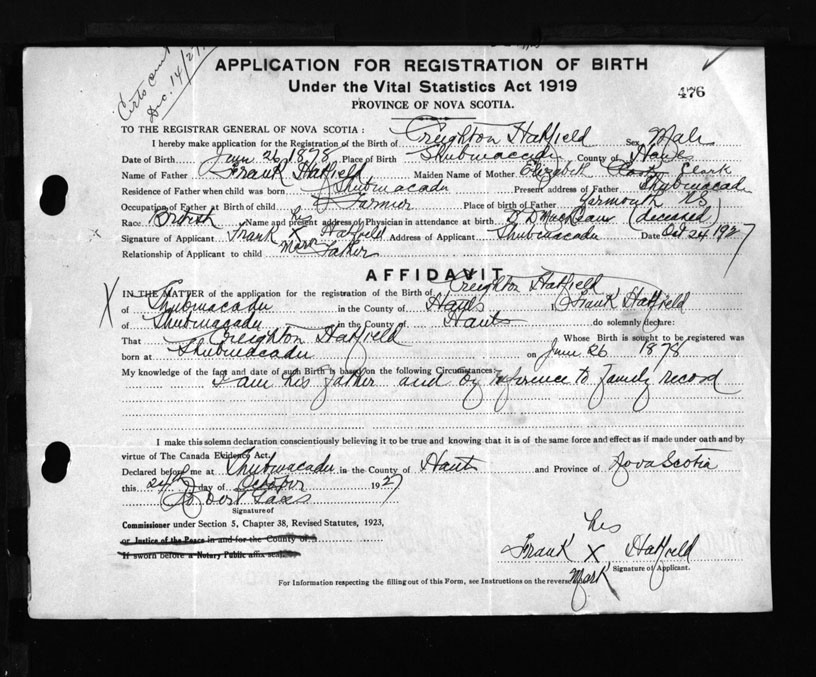 Certs cent
Dec. 14/27
APPLICATION FOR REGISTRATION OF BIRTH
Under the Vital Statistics Act 1919
476
PROVINCE OF NOVA SCOTIA.
TO THE REGISTRAR GENERAL OF NOVA SCOTIA:
I hereby make application for the Registration of the Birth of Creighton Hatfield Sex Male
Date of Birth June 26 1878 Place of Birth Shubinacadu County of Hants
Name of Father Frank Hatfield Maiden Name of Mother Elizabeth Clark
Residence of Father when child was born Shubinacadu Present address of Father Shubinacadu
Occupation of Father at Birth of child Farmer Place of birth of Father Yarmouth NS
Race British Name and present address of Physician in attendance at birth (deceased)
Signature of Applicant Frank his X mark Hatfield Address of Applicant Shubinacadu Date Oct 24 1927
Relationship of Applicant to child Father
AFFIDAVIT
IN THE MATTER of the application for the registration of the Birth of Creighton Hatfield
X of Shubinacadu in the County of Hants , Frank Hatfield
of Shubinacadu in the County of Hants do solemnly declare:
That Creighton Hatfield Whose Birth is sought to be registered was
born at Shubinacadu on June 26 1878
My knowledge of the fact and date of such Birth is based on the following Circumstances:
I am his father and by reference to family record
I make this solemn declaration conscientiously believing it to be true and knowing that it is of the same force and effect as if made under oath and by
virtue of The Canada Evidence Act.
Declared before me at Shubinacadu in the County of Hants and Province of Nova Scotia
this 24th day of October 1927
Signature of
Commissioner under Section 5, Chapter 38, Revised Statutes, 1923,
or Justice of the Peace in and for the County of
If sworn before a Notary Public affix seal
his
Frank X Hatfield
Mark
Signature of Applicant.
For Information respecting the filling out of this Form, see Instructions on the reverse